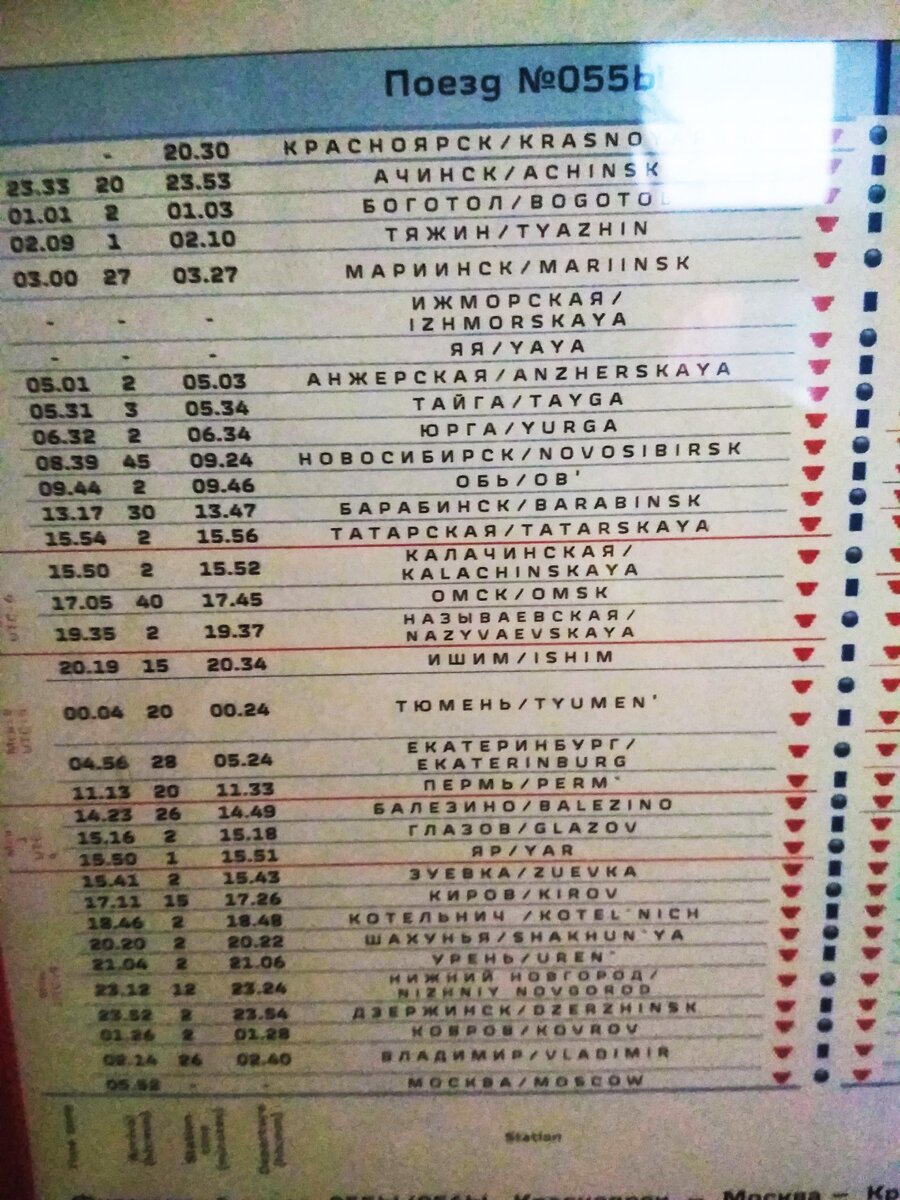 Поезд №055Ы
- 20.30 КРАСНОЯРСК/KRASNO
23.33 20 23.53 АЧИНСК/ACHINSK
01.01 2 01.03 БОГОТОЛ/BOGOTOL
02.09 1 02.10 ТЯЖИН/TYAZHIN
03.00 27 03.27 МАРИИНСК/MARIINSK
- - - ИЖМОРСКАЯ/
IZHMORSKAYA
- - - ЯЯ/YAYA
05.01 2 05.03 АНЖЕРСКАЯ/ANZHERSKAYA
05.31 3 05.34 ТАЙГА/TAYGA
06.32 2 06.34 ЮРГА/YURGA
08.39 45 09.24 НОВОСИБИРСК/NOVOSIBIRSK
09.44 2 09.46 ОБЬ/OB'
13.17 30 13.47 БАРАБИНСК/BARABINSK
15.54 2 15.56 ТАТАРСКАЯ/TATARSKAYA
15.50 2 15.52 КАЛАЧИНСКАЯ/
KALACHINSKAYA
17.05 40 17.45 ОМСК/OMSK
19.35 2 19.37 НАЗЫВАЕВСКАЯ/
NAZYVAEVSKAYA
20.19 15 20.34 ИШИМ/ISHIM
00.04 20 00.24 ТЮМЕНЬ/TYUMEN'
04.56 28 05.24 ЕКАТЕРИНБУРГ/
EKATERINBURG
11.13 20 11.33 ПЕРМЬ/PERM`
14.23 26 14.49 БАЛЕЗИНО/BALEZINO
15.16 2 15.18 ГЛАЗОВ/GLAZOV
15.50 1 15.51 ЯР/YAR
15.41 2 15.43 ЗУЕВКА/ZUEVKA
17.11 15 17.26 КИРОВ/KIROV
18.46 2 18.48 КОТЕЛЬНИЧ /KOTEL`NICH
20.20 2 20.22 ШАХУНЬЯ/SHAKHUN`YA
21.04 2 21.06 УРЕНЬ/UREN`
23.12 12 23.24 НИЖНИЙ НОВГОРОД/
NIZHNIY NOVGOROD
23.52 2 23.54 ДЗЕРЖИНСК/DZERZHINSK
01.26 2 01.28 КОВРОВ/KOVROV
02.14 26 02.40 ВЛАДИМИР/VLADIMIR
05.52 - - МОСКВА/MOSCOW
Station
Москва –